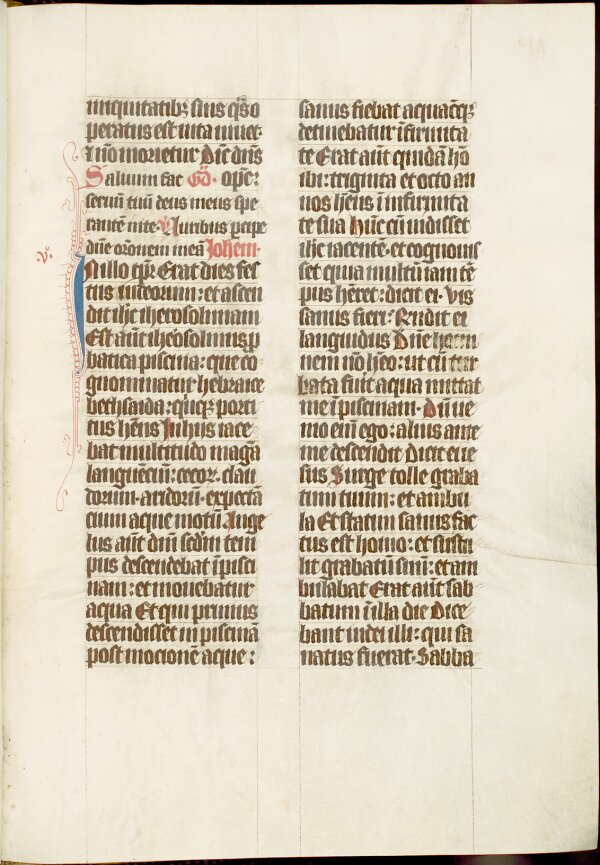 iniquitatibꝫ suis q̄s o
peratus est uita uiuet·
⁊ nō morietur Dic̄ dn̄s
Saluum fac Gď· ops̄:
seruū tuū deus meus spe
rantē in te· V̓ Auribus ꝑcipe
dn̄e or̄onem meā Johem̄·
v̓·
IN illo tp̄r Erat dies fes
tus iudeorum: et ascen
dit ih̄c iherosolimam
Est aūt iherosolimis ꝓ
batica piscina: que co
gnominatur hebraice
bethsaida: quīqꝫ porti
cus hn̄s In hijs iace
bat multitudo magā
languēciū: cecor̄· clau
dorum· aridorū· expectā
cium aque motū Ange
lus aūt dn̄i scd̄m tem
pus descendebat ī pisci
nam: et mouebatur
aqua Et qui primus
descendisset in piscinā
post mocionē aque:
sanus fiebat a quacūqꝫ
detinebatur īfirmita
te Erat aūt quidā hō
ibi: triginta et octo an
nos hn̄s ī infirmita
te sua Hūc cū uidisset
ih̄c iacentē· et cognouis
set quia multū iam tē
pus hēret: dicit ei· Vis
sanus fieri? Rn̄dit ei
languidus Dn̄e homi
nem nō hēo: ut cū tur
bata fuit aqua mittat
me ī piscinam· Dū ue
nio enī ego: alius ante
me descendit Dicit ei ie
sus Surge tolle graba
tum tuum: et ambu
la Et statim sanus fac
tus est homo: et sustu
lit grabatū suū: et am
bulabat Erat aūt sab
batum ī illa die Dice
bant iudei illi: qui sa
natus fuerat· Sabba